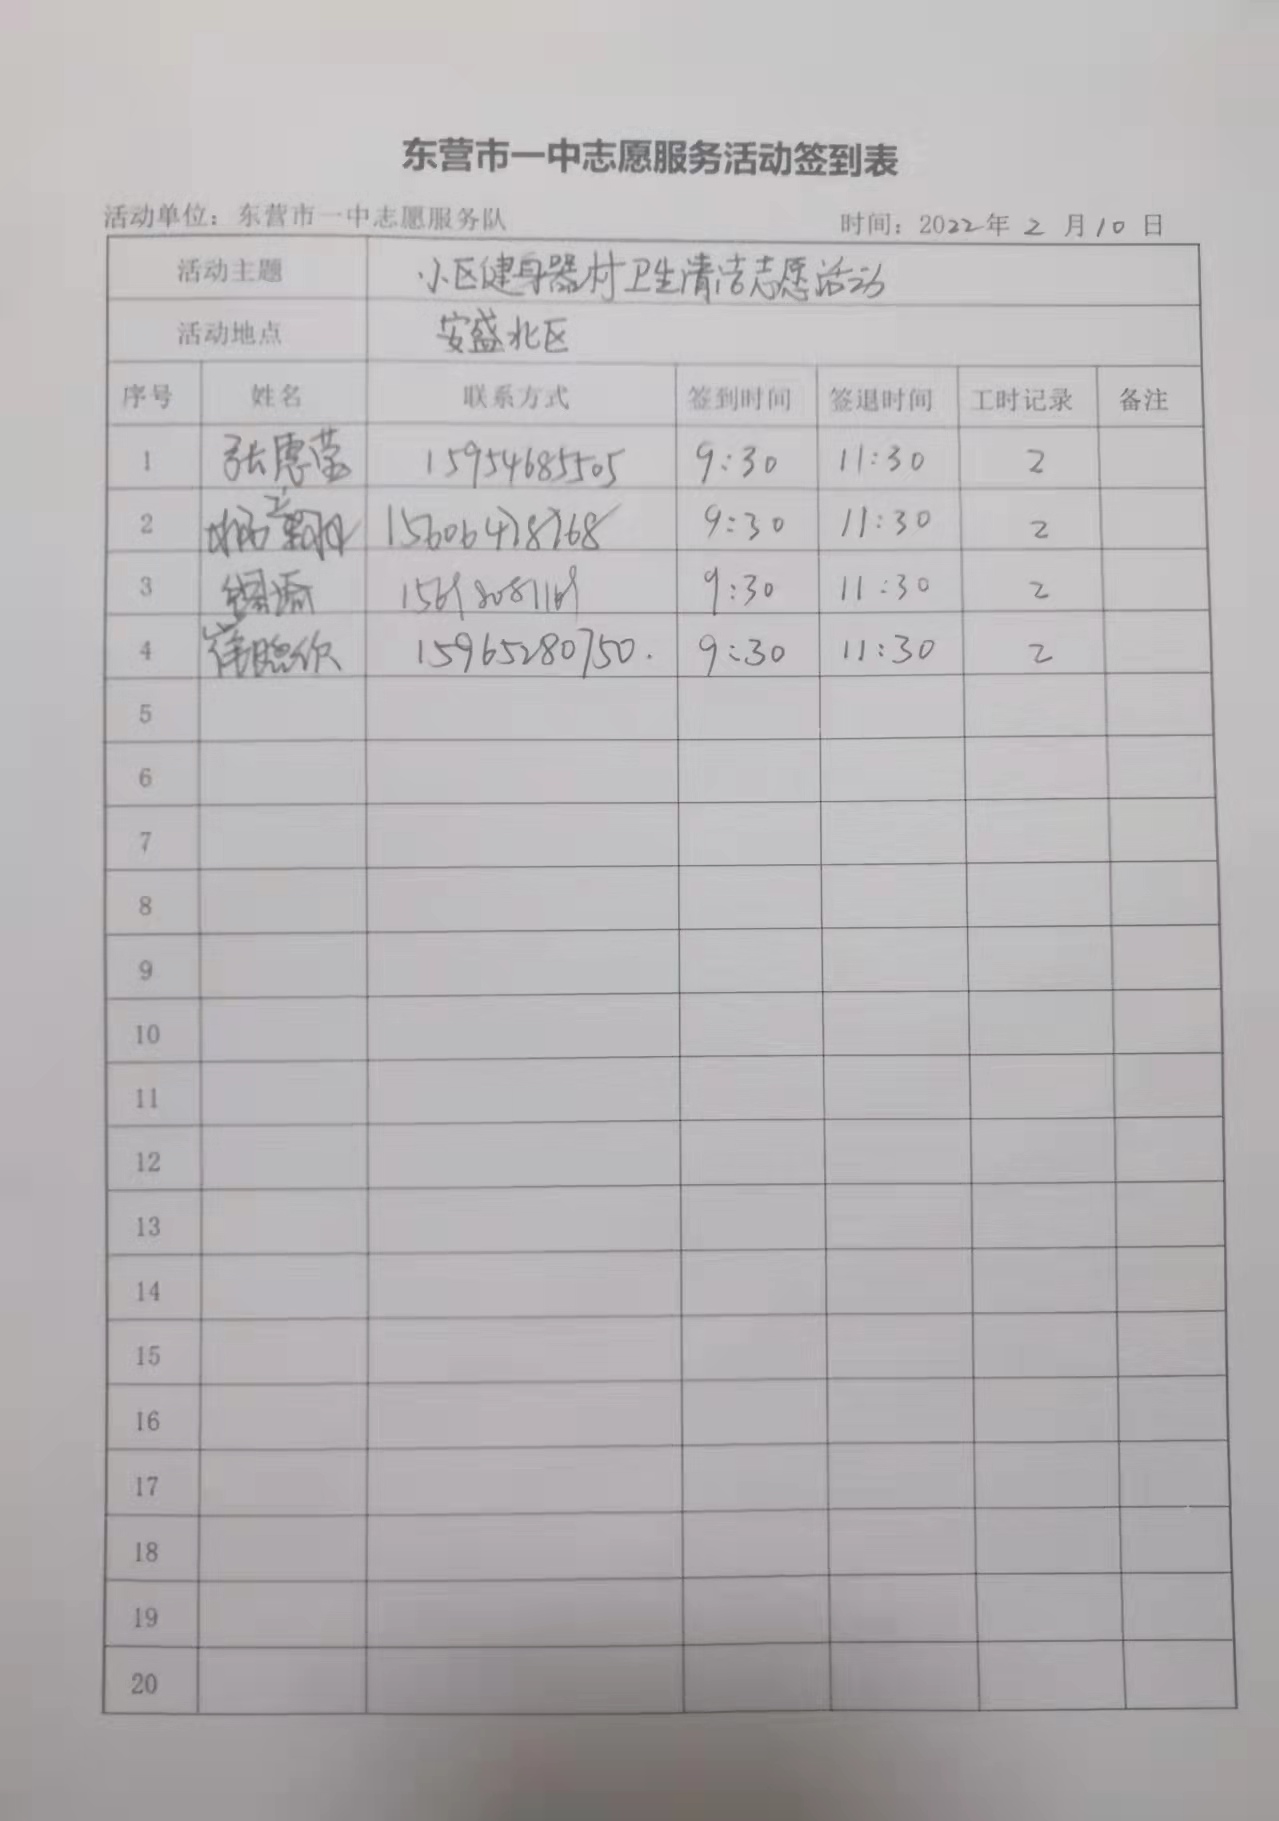 东营市一中志愿服务活动签到表
活动单位：东营市一中志愿服务队 时间：2022年 2 月 10 日
活动主题 小区健身器材卫生清洁志愿活动
活动地点 安盛北区
序号 姓名 联系方式 签到时间 签退时间 工时记录 备注
1 张惠莹 15954685505 9:30 11:30 2
2 15606478768 9:30 11:30 2
3 9:30 11:30 2
4 崔晓欣 15965280750. 9:30 11:30 2
5
6
7
8
9
10
11
12
13
14
15
16
17
18
19
20